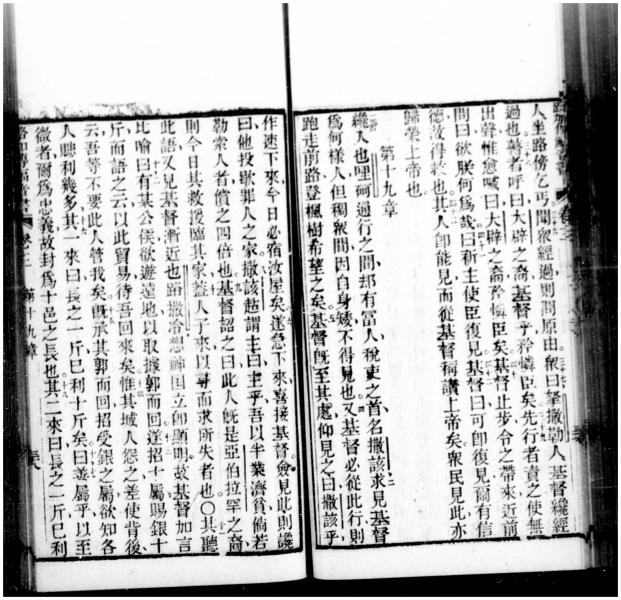 人坐路傍乞丐聞衆經過則問原由衆曰拏撒勒人基督纔經
過也瞽者呼曰大辟之裔基督乎矜憐臣矣先行者責之使無
出聲惟愈喊曰大辟之裔矜憐臣矣基督止步令之帶來近前
問曰欲朕何爲哉曰新主使臣復見基督曰可卽復見爾有信
德汝得救也其人卽能見而從基督稱讚上帝矣衆民見此亦
歸榮上帝也
第十九章
纔入也哩𠯿過行之間却有富人稅吏之首名撒該求見基督
爲何樣人但稠衆間因白身矮不得見也又基督必從此行則
跑走前路登楓樹希望之矣基督旣至其處仰見之曰撒該乎
作速下來今日必宿汝屋矣遂急下來喜接基督僉見此則讒
曰他投歇罪人之家撒該起謂主曰主乎吾以半業濟貧倘若
勒索人者償之四倍也基督詔之曰此人旣是亞伯拉罕之裔
則今日其救援臨其家蓋人子來以尋而求所失者也〇其聽
此語又見基督漸近也路撒冷想神国立卽顯明故基督加言
比喻曰有某公侯欲遊遠地以取據郭而回遂招十屬賜銀十
斤而語之云以此貿易待吾回來矣惟其城人怨之差使背後
云吾等不要此人管我矣旣承其郭而回招受銀之屬欲知各
人聽利幾多其一來曰長之一斤巳利十斤矣曰善屬乎以至
微者爾爲忠義故封爲十邑之長也其二來曰長之一斤巳利
第十九章